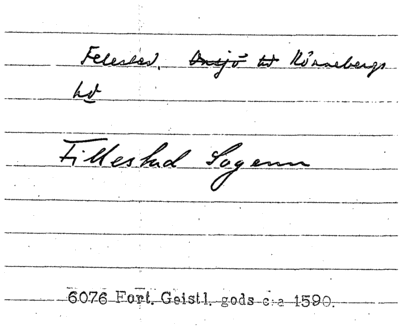 Felestad, Onsjö hd Rönnebergs
hd
Fillestad Sogenn
6076 Fort. Geistl. gods c:a 1590.